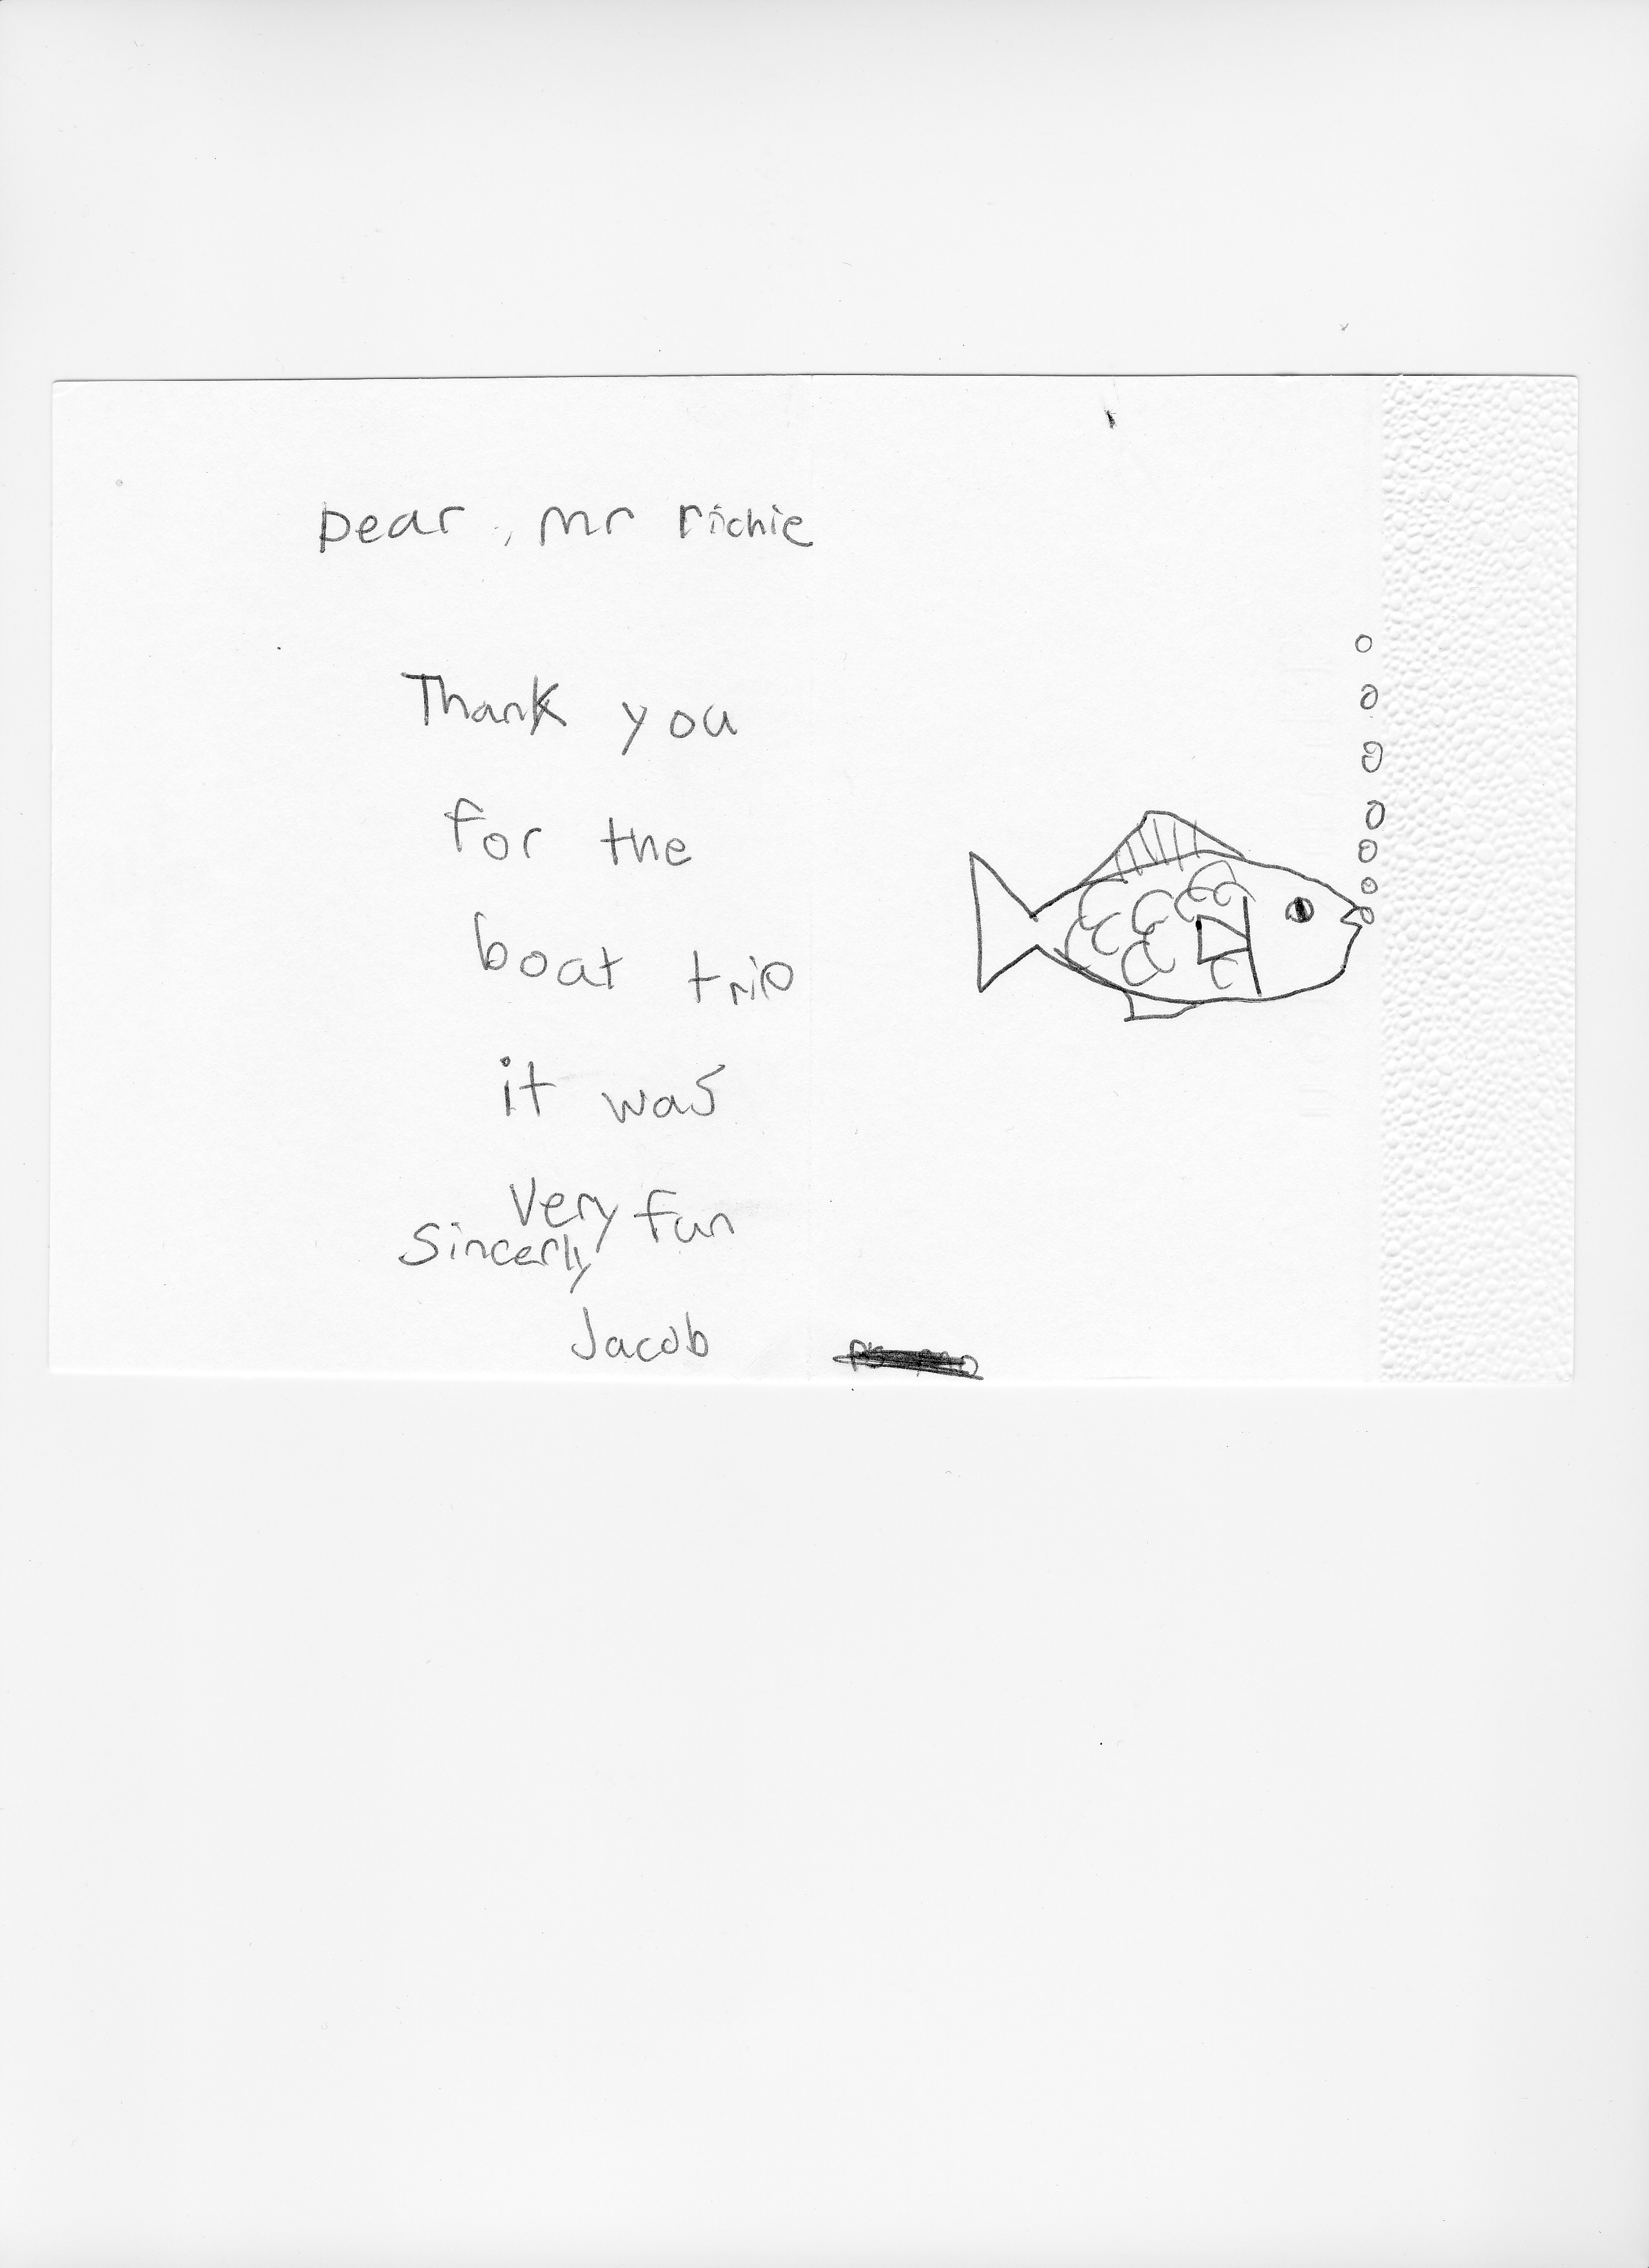 Dear, mr richie
Thank you
for the
boat trip
it was
very fun
Sincerly
Jacob